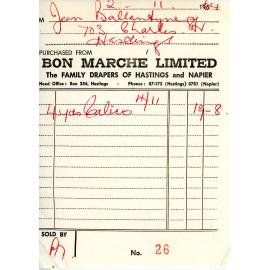 2 - 11 1964
M Jean Ballantyne
703 Charles St
Hastings
PURCHASED FROM
BON MARCHE LIMITED
The FAMILY DRAPERS OF HASTINGS and NAPIER
Head Office: Box 354, Hastings - Phones: 87-172 (Hastings) 5781 (Napier)
14/11
4 yds Calico 19-8
SOLD BY
No. 26